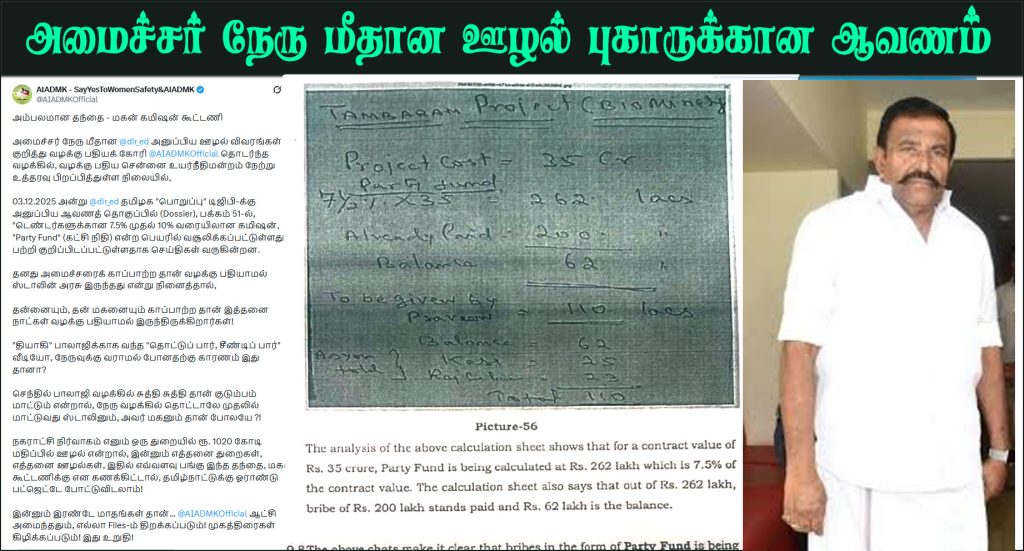 அமைச்சர் நேரு மீதான ஊழல் புகாருக்கான ஆவணம்
AIADMK - SayYesToWomenSafety&AIADMK
@AIADMKOfficial
அம்பலமான தந்தை - மகன் கமிஷன் கூட்டணி
அமைச்சர் நேரு மீதான @dir_ed அனுப்பிய ஊழல் விவரங்கள்
குறித்து வழக்கு பதியக் கோரி @AIADMKOfficial தொடர்ந்த
வழக்கில், வழக்கு பதிய சென்னை உயர்நீதிமன்றம் நேற்று
உத்தரவு பிறப்பித்துள்ள நிலையில்,
03.12.2025 அன்று @dir_ed தமிழக "பொறுப்பு" டிஜிபி-க்கு
அனுப்பிய ஆவணத் தொகுப்பில் (Dossier), பக்கம் 51-ல்,
"டெண்டர்களுக்கான 7.5% முதல் 10% வரையிலான கமிஷன்,
"Party Fund" (கட்சி நிதி) என்ற பெயரில் வசூலிக்கப்பட்டுள்ளது
பற்றி குறிப்பிடப்பட்டுள்ளதாக செய்திகள் வருகின்றன.
தனது அமைச்சரைக் காப்பாற்ற தான் வழக்கு பதியாமல்
ஸ்டாலின் அரசு இருந்தது என்று நினைத்தால்,
தன்னையும், தன் மகனையும் காப்பாற்ற தான் இத்தனை
நாட்கள் வழக்கு பதியாமல் இருந்திருக்கிறார்கள்!
"தியாகி" பாலாஜிக்காக வந்த "தொட்டுப் பார், சீண்டிப் பார்"
வீடியோ, நேருவுக்கு வராமல் போனதற்கு காரணம் இது
தானா?
செந்தில் பாலாஜி வழக்கில் சுத்தி சுத்தி தான் குடும்பம்
மாட்டும் என்றால், நேரு வழக்கில் தொட்டாலே முதலில்
மாட்டுவது ஸ்டாலினும், அவர் மகனும் தான் போலயே ?!
நகராட்சி நிர்வாகம் எனும் ஒரு துறையில் ரூ. 1020 கோடி
மதிப்பில் ஊழல் என்றால், இன்னும் எத்தனை துறைகள்,
எத்தனை ஊழல்கள், இதில் எவ்வளவு பங்கு இந்த தந்தை, மக
கூட்டணிக்கு என கணக்கிட்டால், தமிழ்நாட்டுக்கு ஓராண்டு
பட்ஜெட்டே போட்டுவிடலாம்!
இன்னும் இரண்டே மாதங்கள் தான்... @AIADMKOfficial ஆட்சி
அமைந்ததும், எல்லா Files-ம் திறக்கப்படும்! முகத்திரைகள்
கிழிக்கப்படும்! இது உறுதி!
TAMBARAM Project (BIOMINING)
Project Cost 35 Cr
Party fund
7½% X35 = 262 lacs
Already Paid = 200 "
Balance 62 "
To be given by
Praveen = 110 lacs
Balance = 62
= 25
= 23
Total 110
Picture-56
The analysis of the above calculation sheet shows that for a contract value of
Rs. 35 crore, Party Fund is being calculated at Rs. 262 lakh which is 7.5% of
the contract value. The calculation sheet also says that out of Rs. 262 lakh,
bribe of Rs. 200 lakh stands paid and Rs. 62 lakh is the balance.
9.8 The above chats make it clear that bribes in the form of Party Fund is being